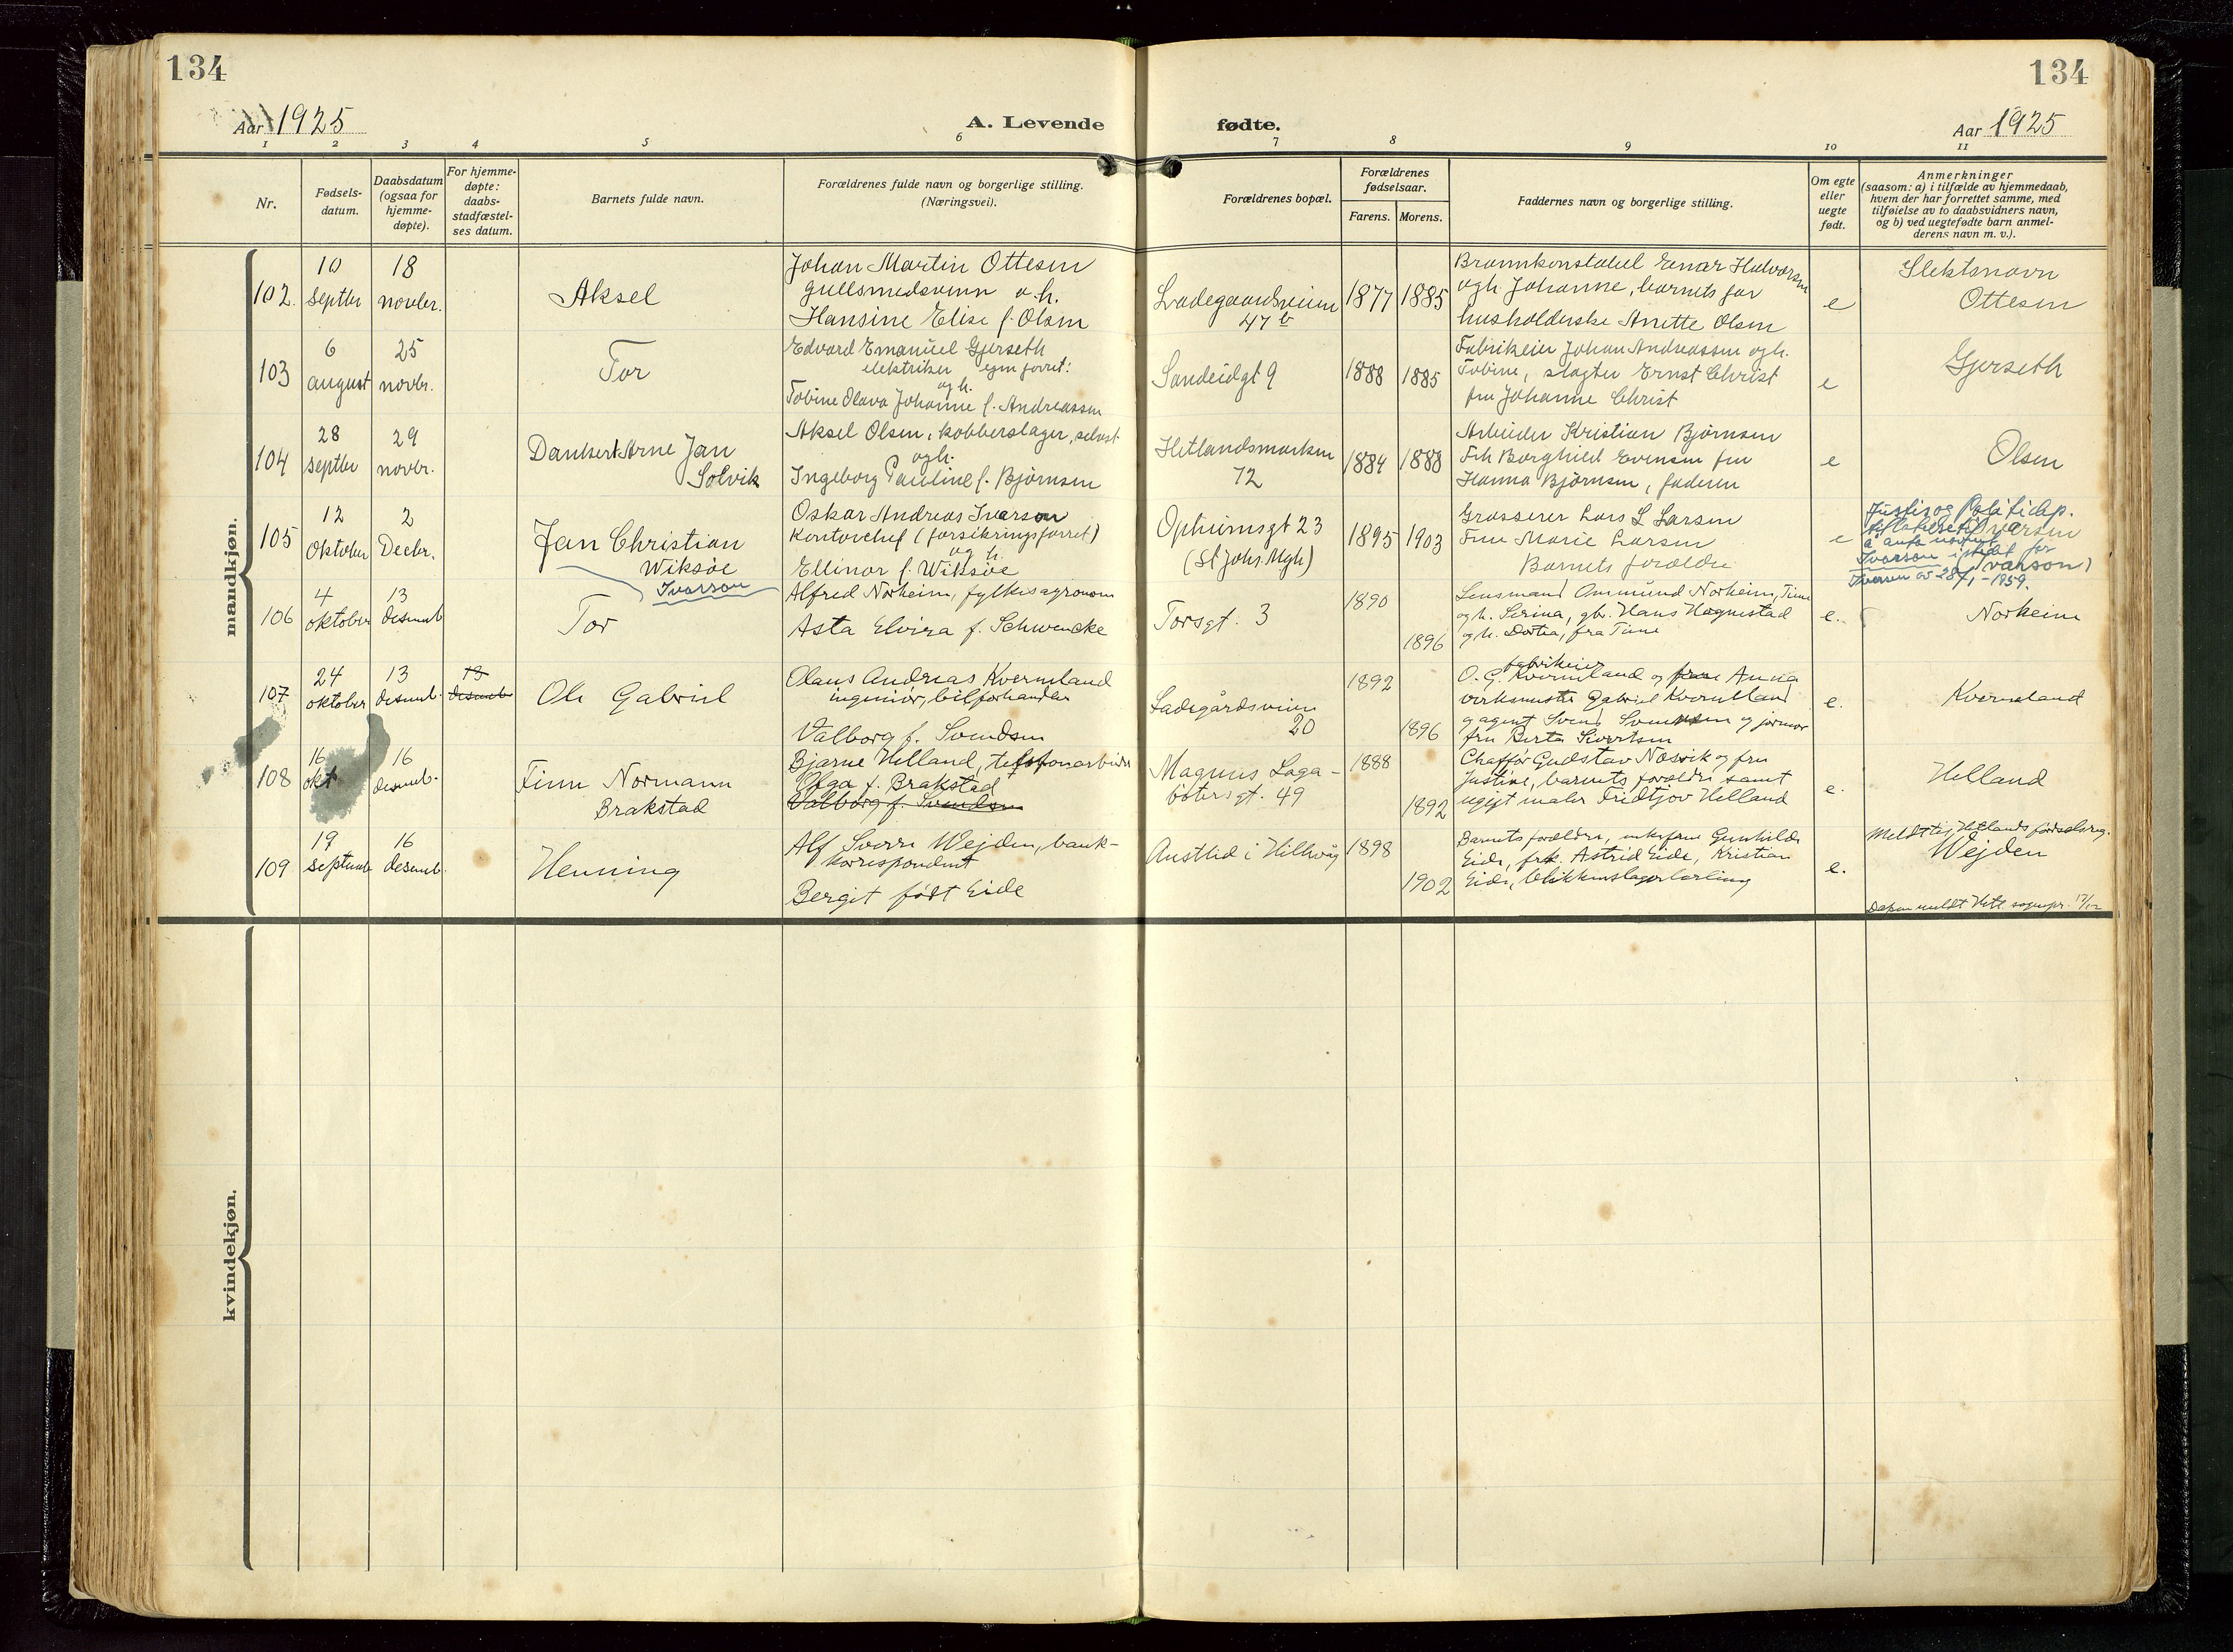 134
134
Aar 1925
A. Levende
fødte.
Aar 1925
1
2
3
4
5
6
7
8
9
10
11
Nr.
Fødsels-
datum.
Daabsdatum
(ogsaa for
hjemme-
døpte).
For hjemme-
døpte:
daabs-
stadfæstel-
ses datum.
Barnets fulde navn.
Forældrenes fulde navn og borgerlige stilling.
(Næringsvei).
Forældrenes bopæl.
Forældrenes
fødselsaar.
Farens.
Morens.
Faddernes navn og borgerlige stilling.
Om egte
eller
uegte
født.
Anmerkninger
(saasom: a) i tilfælde av hjemmedaab,
hvem der har forrettet samme, med
tilføielse av to daabsvidners navn,
og b) ved uegtefødte barn anmel-
derens navn m. v.).
mandkjøn.
102
10
septbr
18
novbr.
Aksel
Johan Martin Ottesen
gullsmedsvenn o. h.
Hansine Elise f. Olsen
Ladegaardsveien
47 b
1877
1885
Brannkonstabel Einar Halvorsen
ogh. Johanne, barnets far
husholderske Anette Olsen
e
Slektsnavn
Ottesen
103
6
august
25
novbr.
Tor
Edvard Emanuel Gjerseth
elektriker egen forret:
ogh.
Tobine Olava Johanne f. Andreassen
Sandeidgt 9
1888
1885
Fabrikeier Johan Andreassen ogh.
Tobine, slagter Ernst Christ
fru Johanne Christ
e
Gjerseth
104
28
septbr
29
novbr.
Dankert Arne Jan
Solvik
Aksel Olsen, kobberslager, selvst.
ogh.
Ingeborg Pauline f. Bjørnsen
Hetlandsmarken
72
1884
1888
Arbeider Kristian Bjørnsen
Frk Borghild Evensen fru
Hanna Bjørnsen, faderen
e
Olsen
105
12
Oktober
2
Decbr.
Jan Christian
Wiksøe
Ivarson
Oskar Andreas Ivarson
Kontorchef (forsikringsforret)
og h.
Ellinor f. Wiksøe
Opheimsgt 23
(St Johs. Mgh)
1895
1903
Grosserer Lars L Larsen
Frue Marie Larsen
Barnets foreldre
e
Justis og Politidep.
tillatelse til
å anta navnet
Ivarson istedet for
Iversen av 28/1-1959.
106
4
oktober
13
desemb
Tor
Alfred Norheim, fylkesagronom
Asta Elvira f. Schwencke
Torsgt. 3
1890
1896
Lensmand Ommund Norheim, Time
og h. Serina, gb. Hans Hognestad
og h. Dortea, fra Time
e.
Norheim
107
24
oktober
13
desemb.
13
desemb
Ole Gabriel
Olaus Andreas Kverneland
ingeniør, bilforhandler
Valborg f. Svendsen
Ladegårdsveien
20
1892
1896
fabrikeier
O. G. Kverneland og frue Anna
verksmester Gabriel Kverneland
og agent Svend Svendsen og jormor
fru Berta Sivertsen
e.
Kverneland
108
16
okt
16
desemb.
Finn Normann
Brakstad
Bjarne Helland, telefonarbeider
Olga f. Brakstad
Valborg f. Svendsen
Magnus Laga-
bøtersgt. 49
1888
1892
Chaffør Gudstav Næsvik og fru
Justine, barnets foreldre samt
ugift maler Fridtjov Helland
e.
Helland
109
19
septemb
16
desemb.
Henning
Alf Sverre Wejden, bank-
korrespondent
Bergit født Eide
Austlid i Hillevåg
1898
1902
Barnets foreldre, enkefrue Gunhilde
Eide, frk. Astrid Eide, Kristian
Eide, blikkenslagerlærling
e.
Meldt til Hetlands fødselsreg.
Wejden
Dåpen meldt Hetl. sognepr. 17/12
kvindekjøn.